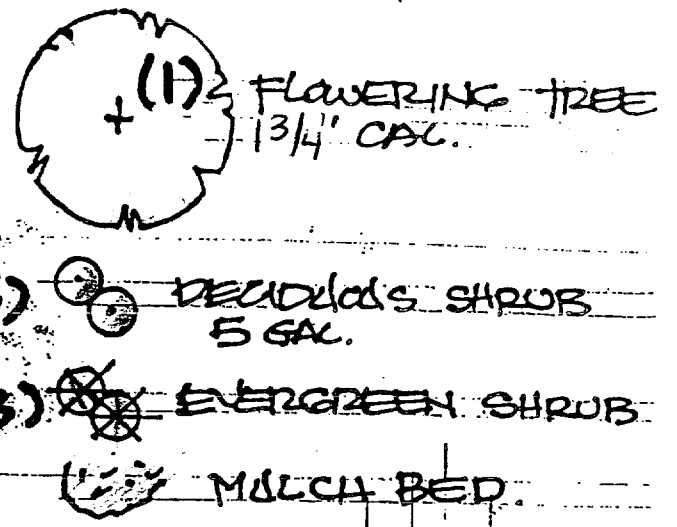 (1) FLOWERING TREE
1 3/4" CAL.
) DECIDUOUS SHRUB
5 GAL.
) EVERGREEN SHRUB
MULCH BED